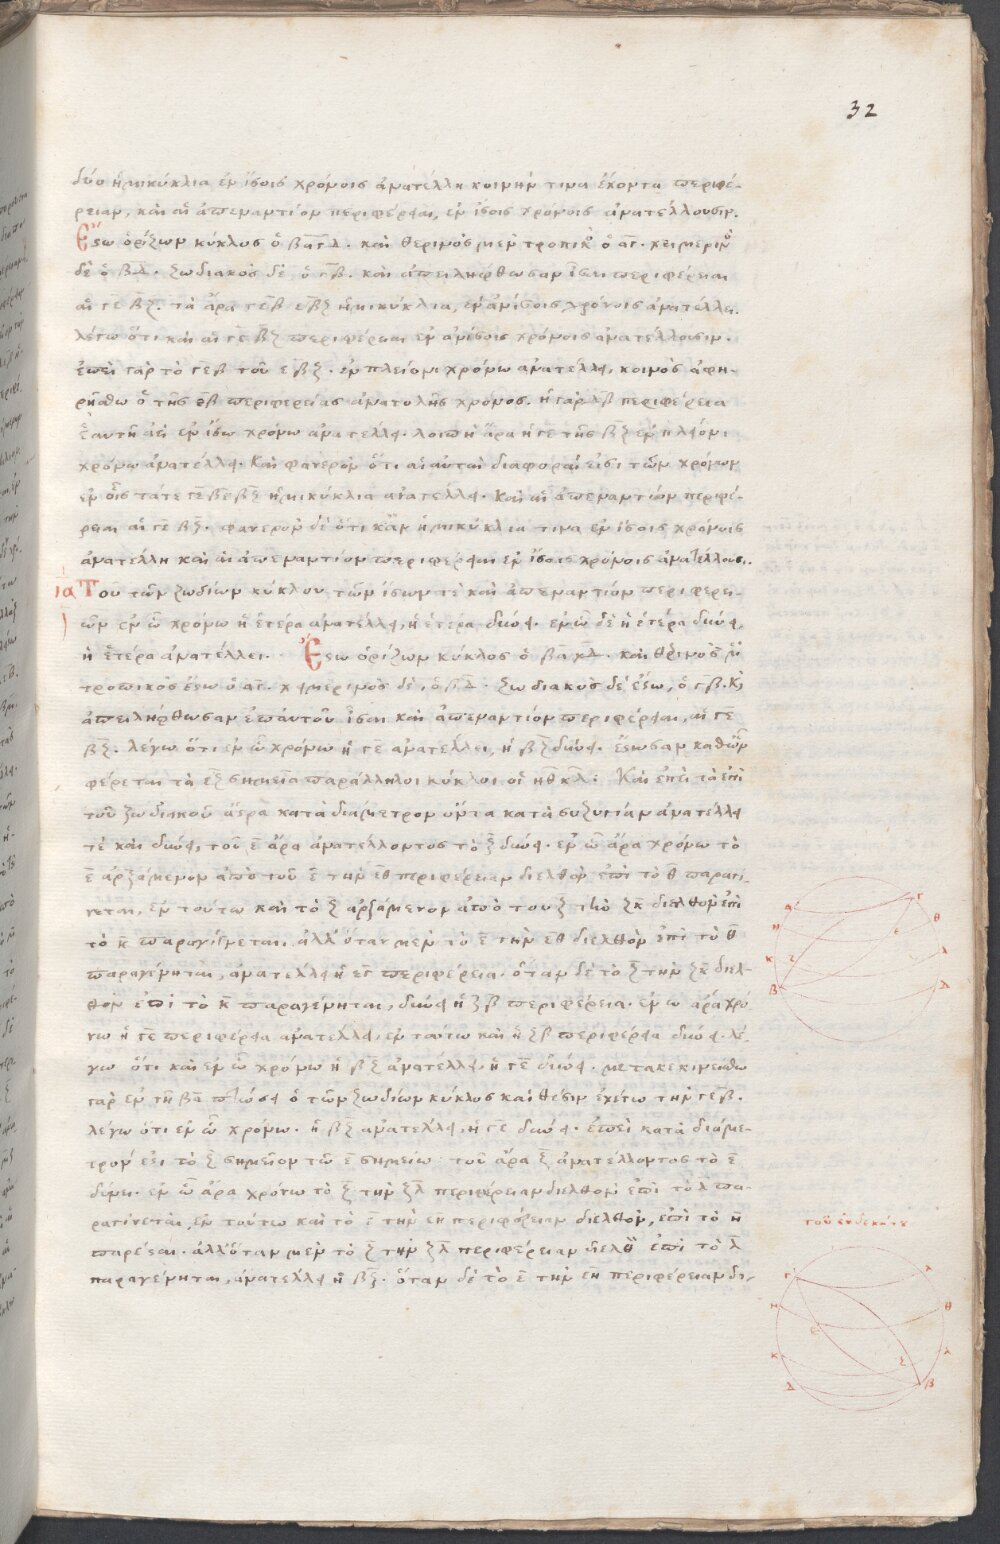 32
δύο ἡμικύκλια ἐν ἴσοις χρόνοις ἀνατέλλη κοινήν τινα ἔχοντα περιφέ-
ρειαν, καὶ αἱ ἀπεναντίον περιφέρειαι, ἐν ἴσοις χρόνοις ἀνατέλλουσιν.
Ἔστω ὁρίζων κύκλος ὁ βα̅γ̅δ̅. καὶ θερινὸς μὲν τροπικὸς ὁ α̅γ̅. χειμερινὸς
δὲ ὁ β̅δ̅. ζωδιακὸς δὲ ὁ γ̅β̅. καὶ ἀπειλήφθωσαν ἴσαι περιφέρειαι
αἱ γε βζ. τὰ ἄρα γεβ εβζ ἡμικύκλια, ἐν ἀνίσοις χρόνοις ἀνατέλλει.
λέγω ὅτι καὶ αἱ γε βζ περιφέρειαι ἐν ἀνίσοις χρόνοις ἀνατέλλουσιν.
ἐπεὶ γὰρ τὸ γεβ τοῦ εβζ. ἐν πλείονι χρόνω ἀνατέλλει, κοινὸς ἀφῃ-
ρήσθω ὁ τῆς εβ περιφερείας ἀνατολῆς χρόνος. ἡ γὰρ εβ περιφέρεια
ἑαυτῆ ἀεὶ ἐν ἴσω χρόνω ἀνατέλλει. λοιπὴ ἄρα ἡ γε τῆς βζ ἐν πλείονι
χρόνω ἀνατέλλει. Καὶ φανερὸν ὅτι αἱ αὐταὶ διαφοραί εἰσι τῶν χρόνων
ἐν οἷς τάτε γεβ εβζ ἡμικύκλια ἀνατέλλει. καὶ αἱ ἀπεναντίον περιφέ-
ρειαι αἱ γε βζ. φανερὸν δὲ ὅτι κἂν ἡμικύκλια τινα ἐν ἴσοις χρόνοις
ἀνατέλλη καὶ αἱ ἀπεναντίον περιφέρειαι ἐν ἴσοις χρόνοις ἀνατέλλουσι.
ια Τοῦ τῶν ζωδίων κύκλου τῶν ἴσων τὲ καὶ ἀπεναντίον περιφερει-
ῶν ἐν ὧ χρόνω ἡ ἑτέρα ἀνατέλλει, ἡ ἑτέρα δύνει. ἐν ὧ δὲ ἡ ἑτέρα δύνει,
ἡ ἑτέρα ἀνατέλλει. Ἔστω ὁρίζων κύκλος ὁ βα̅γ̅δ̅. καὶ θερινὸς μὲν
τροπικὸς ἔστω ὁ αγ. χειμερινὸς δὲ, ὁ βδ. ζωδιακὸς δὲ ἔστω, ὁ γβ. καὶ
ἀπειλήφθωσαν ἐπ' αὐτοῦ ἴσαι καὶ ἀπεναντίον περιφέρειαι, αἱ γε
βζ. λέγω ὅτι ἐν ὧ χρόνω ἡ γε ἀνατέλλει, ἡ βζ δύνει. ἔστωσαν καθ' ὧν
φέρεται τὰ εζ σημεῖα παράλληλοι κύκλοι οἱ ηθ κλ. Καὶ ἐπεὶ τὰ ἐπὶ
τοῦ ζωδιακοῦ ἄστρα κατὰ διάμετρον ὄντα κατὰ συζυγίαν ἀνατέλλει
τὲ καὶ δύνει, τοῦ ε ἄρα ἀνατέλλοντος τὸ ζ δύνει. ἐν ὧ ἄρα χρόνω τὸ
ε ἀρξάμενον ἀπὸ τοῦ ε τὴν εθ περιφέρειαν διελθὸν ἐπὶ τὸ θ παραγί-
νεται, ἐν τούτω καὶ τὸ ζ ἀρξάμενον ἀπὸ του ζ τὴν ζκ διελθὸν ἐπὶ
τὸ κ παραγίγνεται. ἀλλ' ὅταν μὲν τὸ ε τὴν εθ διελθὸν ἐπὶ τὸ θ
παραγένηται, ἀνατέλλει ἡ εγ περιφέρεια. ὅταν δὲ τὸ ζ τὴν ζκ διελ-
θὸν ἐπὶ τὸ κ παραγένηται, δύνει ἡ ζβ περιφέρεια. ἐν ω ἄρα χρό-
νω ἡ γε περιφέρεια ἀνατέλλει, ἐν τούτω καὶ ἡ ζβ περιφέρεια δύνει. λέ-
γω ὅτι καὶ ἐν ὧ χρόνω ἡ βζ ἀνατέλλει, ἡ γε δύνει. μετακεκινείσθω
γὰρ ἐν τῆ βα πτώσει ὁ τῶν ζωδίων κύκλος καὶ θέσιν ἐχέτω τὴν γεβ.
λέγω ὅτι ἐν ὧ χρονω. ἡ βζ ἀνατέλλει, ἡ γε δύνει. ἐπεὶ κατὰ διάμε-
τρόν ἐστι τὸ ζ σημεῖον τῶ ε σημείω τοῦ ἄρα ζ ἀνατέλλοντος τὸ ε
δύνει. ἐν ὧ ἄρα χρόνω τὸ ζ τὴν ζλ περιφέρειαν διελθὸν ἐπὶ τὸ λ πα-
ραγίνεται, ἐν τούτω καὶ τὸ ε τὴν εη περιφέρειαν διελθὸν, ἐπὶ τὸ η
παρέσται. ἀλλ' ὅταν μὲν τὸ ζ τὴν ζλ περιφέρειαν διελθὸν ἐπὶ τὸ λ
παραγένηται, ἀνατέλλει ἡ βζ. ὅταν δὲ τὸ ε τὴν εη περιφέρειαν δι-
α γ
η θ
ε
κ ζ λ
β δ
τοῦ ἑνδεκάτου
γ α
η θ
ε
κ ζ λ
δ β